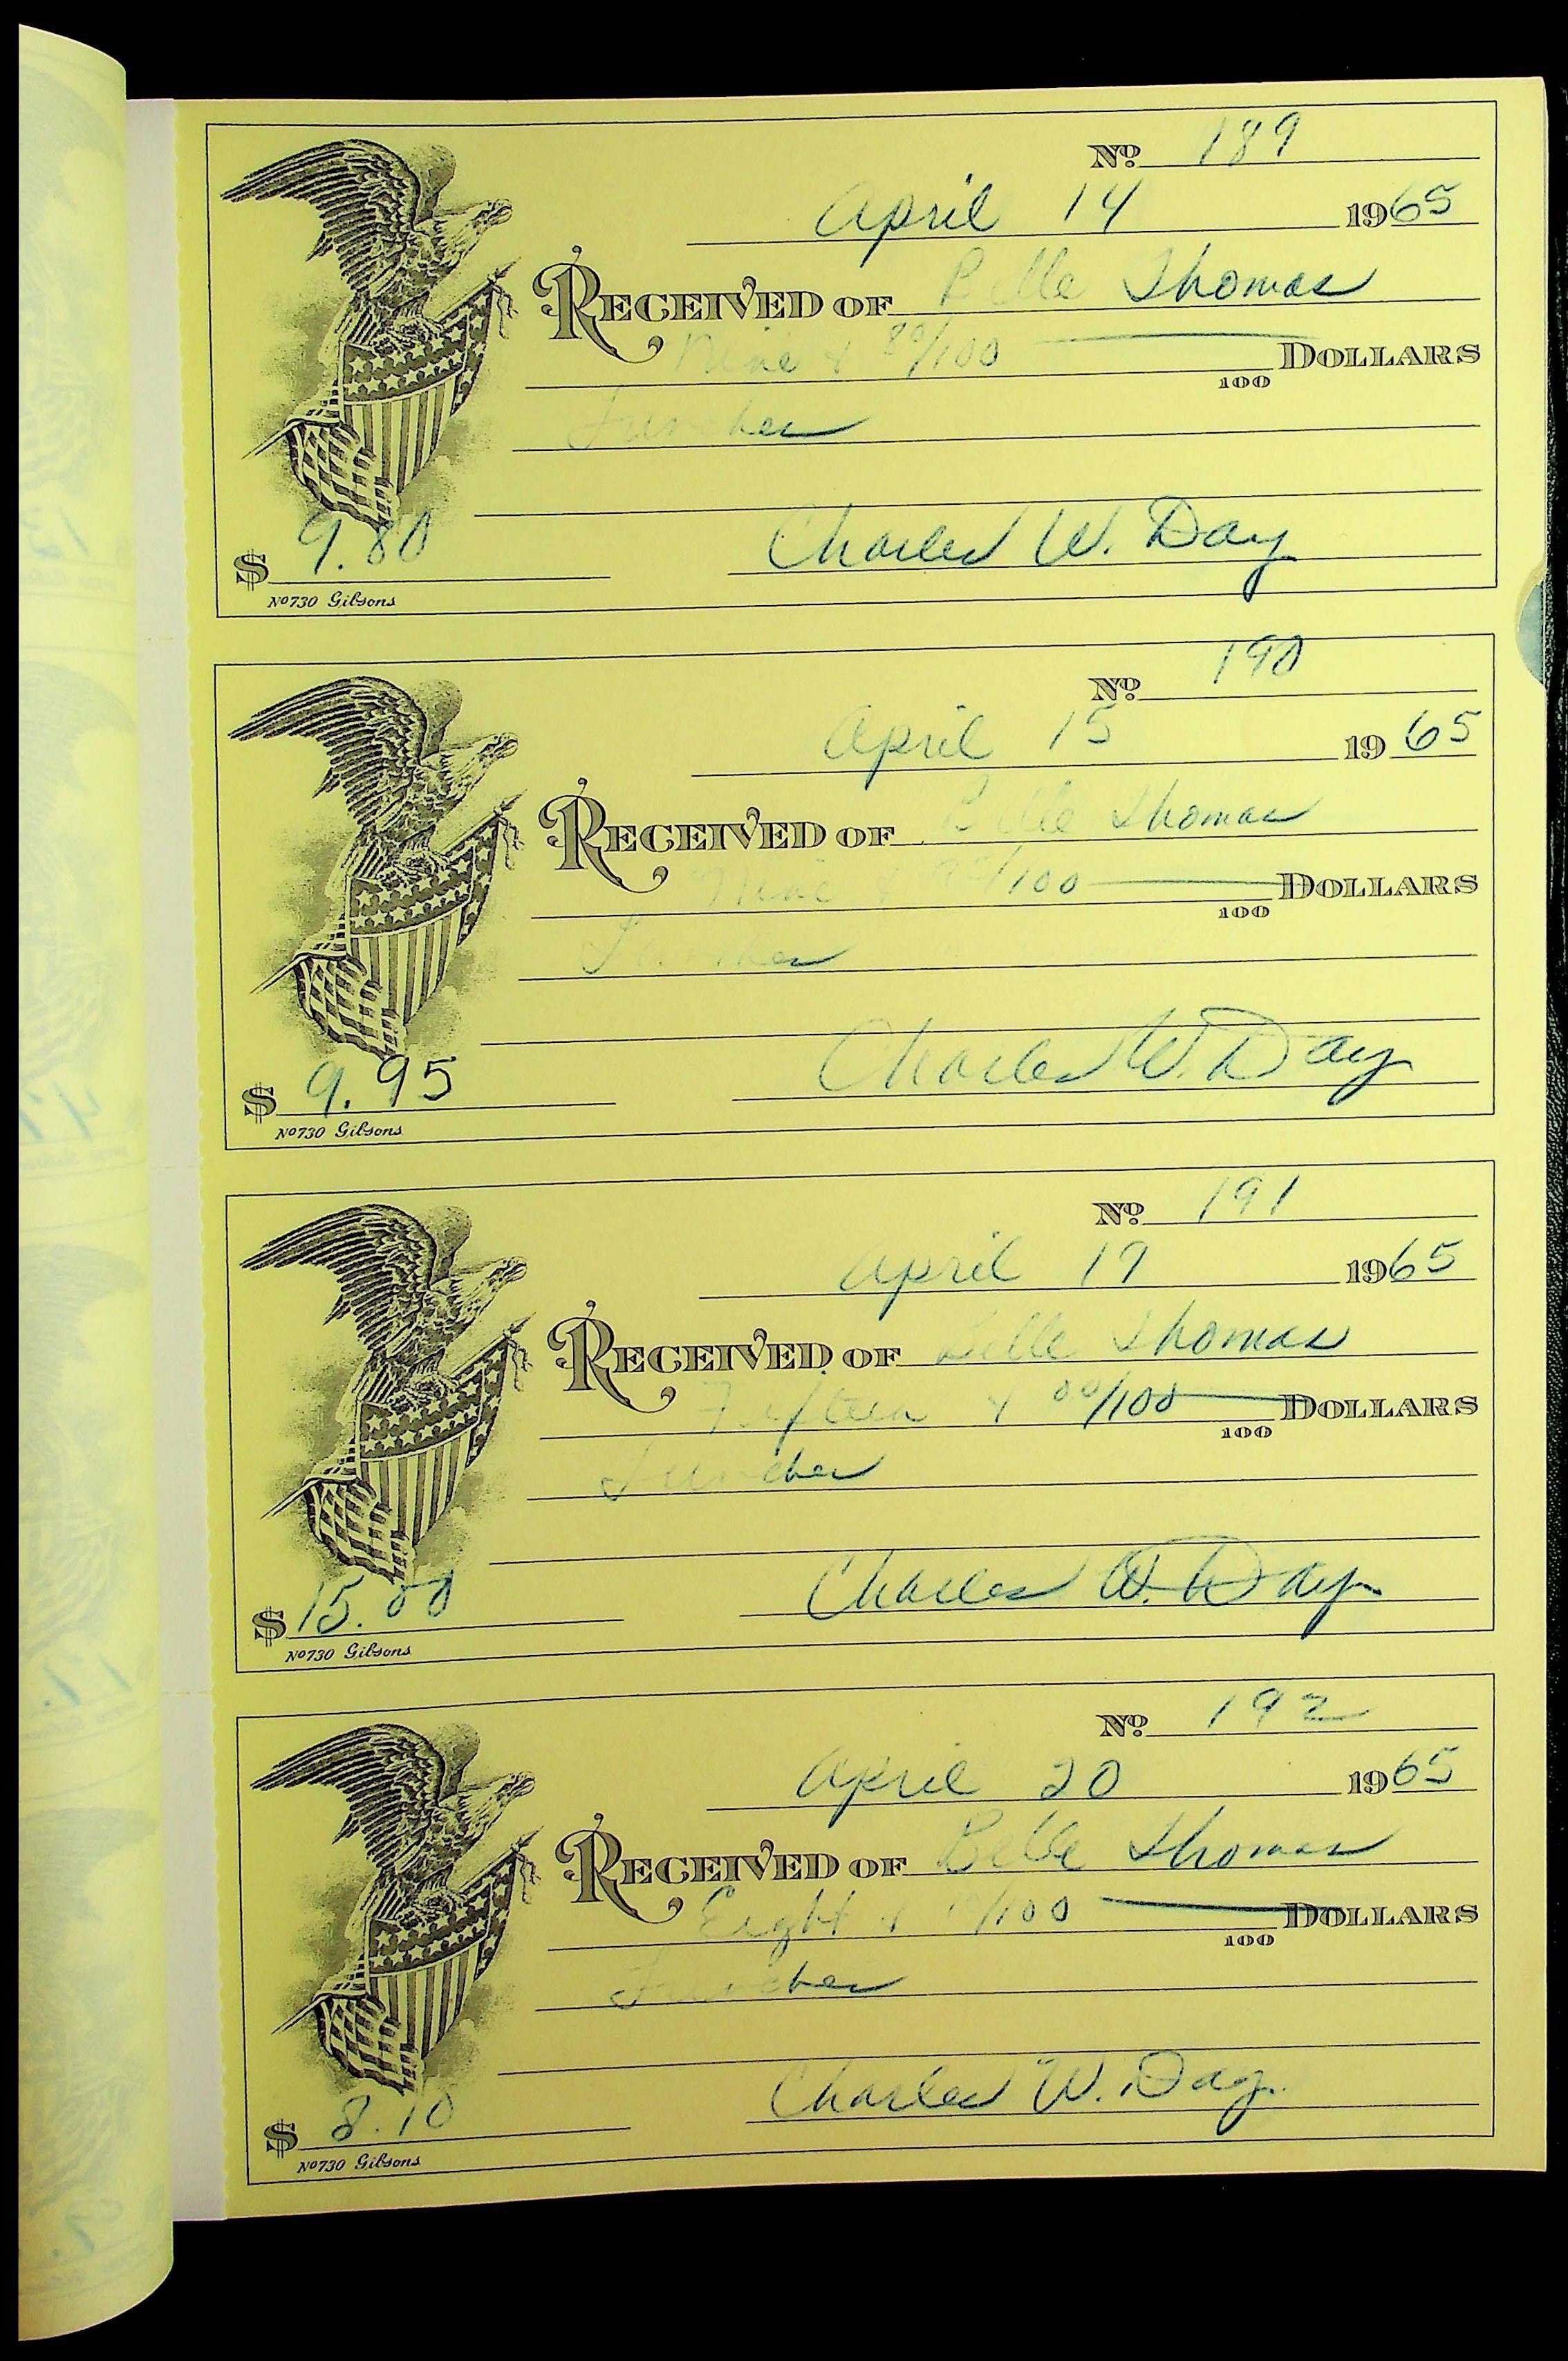 No 189
April 14 1965
RECEIVED OF Belle Thomas
Nine & 80/100 DOLLARS
100
Lunches
Charles W. Day
$ 9.80
No 730 Gibsons
No 190
April 15 1965
RECEIVED OF Belle Thomas
Nine & 95/100 DOLLARS
100
Lunches
Charles W. Day
$ 9.95
No 730 Gibsons
No 191
April 19 1965
RECEIVED OF Belle Thomas
Fifteen & 00/100 DOLLARS
100
Lunches
Charles W. Day
$ 15.00
No 730 Gibsons
No 192
April 20 1965
RECEIVED OF Belle Thomas
Eight & 10/100 DOLLARS
100
Lunches
Charles W. Day
$ 8.10
No 730 Gibsons